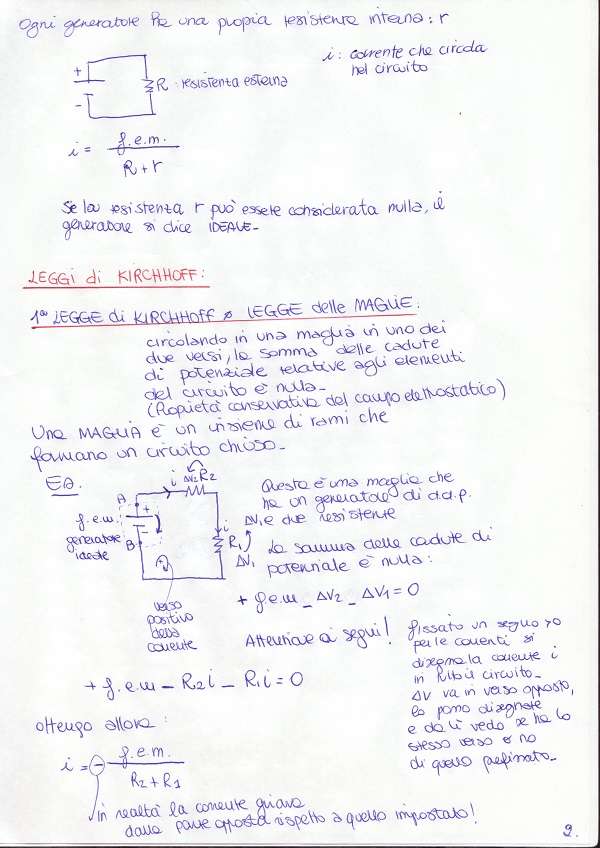 Ogni generatore ha una propria resistenza interna: r
i: corrente che circola
nel circuito
+
R: resistenza esterna
-
i = f.e.m. / R+r
Se la resistenza r può essere considerata nulla, il
generatore si dice IDEALE-
LEGGI di KIRCHHOFF:
1ª LEGGE di KIRCHHOFF o LEGGE delle MAGLIE:
circolando in una maglia in uno dei
due versi, la somma delle cadute
di potenziale relative agli elementi
del circuito è nulla-
(Proprietà conservativa del campo elettrostatico)
Una MAGLIA è un insieme di rami che
formano un circuito chiuso-
Es.
i ΔV2 R2
A
+
f.e.m.
generatore
ideale
-
B
i
R1
ΔV1
verso
positivo
della
corrente
Questa è una maglia che
ha un generatore di d.d.p.
ΔV, e due resistenze
La somma delle cadute di
potenziale è nulla:
+ f.e.m - ΔV2 - ΔV1 = 0
Attenzione ai segni!
fissato un segno >0
per le correnti si
disegna la corrente i
in tutto il circuito-
ΔV va in verso opposto,
le posso disegnare
e da lì vedo se ha lo
stesso verso o no
di quello prefissato-
+ f.e.m - R2i - R1i = 0
ottengo allora:
i = - f.e.m. / R2+R1
in realtà la corrente girava
dalla parte opposta rispetto a quello impostato!
9.